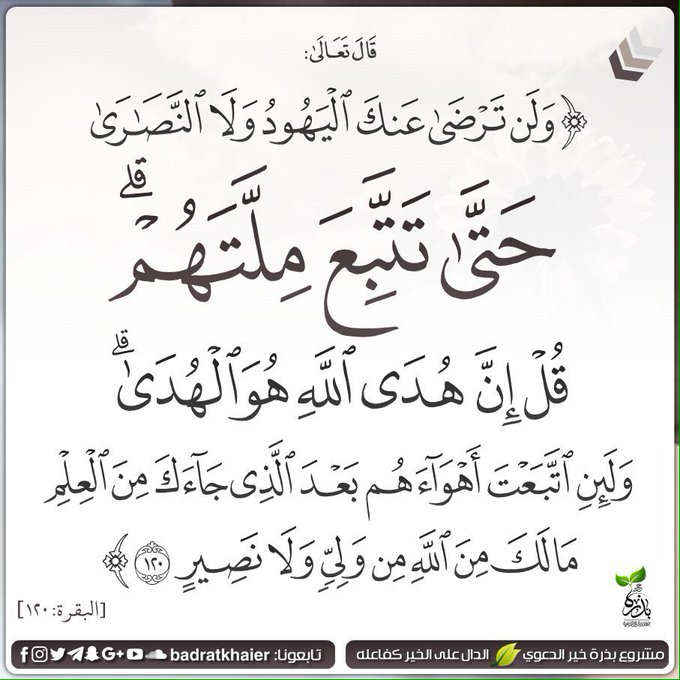 قَالَ تَعَالَىٰ:
﴿وَلَن تَرْضَىٰ عَنكَ ٱلْيَهُودُ وَلَا ٱلنَّصَـٰرَىٰ
حَتَّىٰ تَتَّبِعَ مِلَّتَهُمْ ۗ
قُلْ إِنَّ هُدَى ٱللَّهِ هُوَ ٱلْهُدَىٰ ۗ
وَلَئِنِ ٱتَّبَعْتَ أَهْوَآءَهُم بَعْدَ ٱلَّذِى جَآءَكَ مِنَ ٱلْعِلْمِ
مَا لَكَ مِنَ ٱللَّهِ مِن وَلِىٍّ وَلَا نَصِيرٍ ١٢٠﴾
[البقرة: ١٢٠]
بذرة
مشروع بذرة خير الدعوي الدال على الخير كفاعله تابعونا: badratkhaier